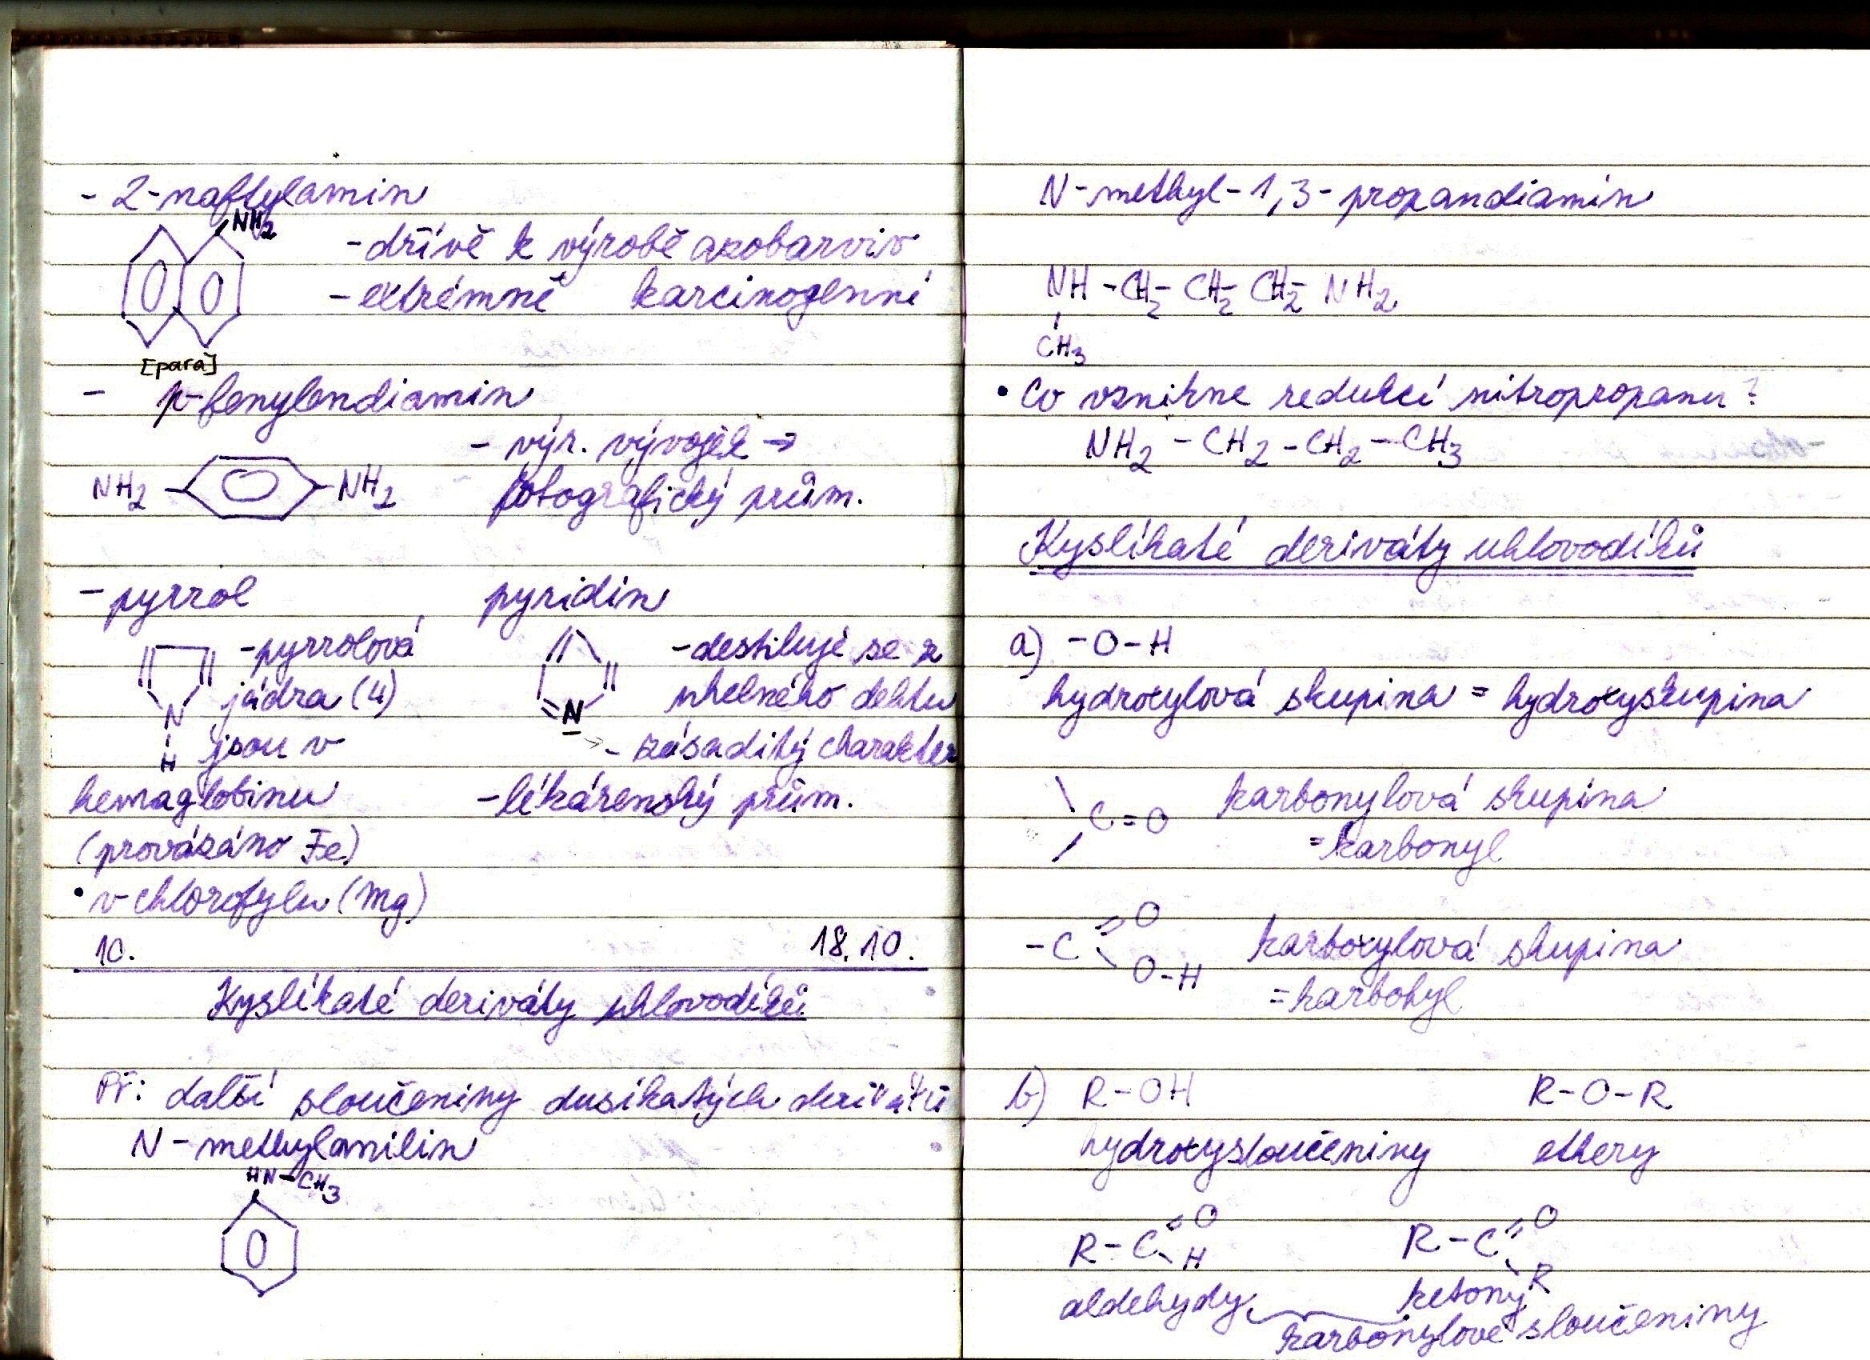 - 2-naftylamin
NH2
-dřívě k výrobě azobarviv
-extrémně karcinogenní
[para]
- p-fenylendiamin
- výr. vývojek →
NH2 NH2
fotografický prům.
-pyrrol
-pyrrolová
jádra (4)
N
H
jsou v
hemaglobinu
(provázáno Fe)
• v chlorofylu (Mg)
pyridin
-destiluje se z
uhelného dehtu
N
→ - zásaditý charakter
-lékárenský prům.
10. 18.10.
Kyslíkaté deriváty uhlovodíků
Př: další sloučeniny dusíkatých derivátů
N-methylanilin
HN-CH3
N-methyl-1,3-propandiamin
NH-CH2-CH2-CH2-NH2
CH3
• Co vznikne redukcí nitropropanu?
NH2-CH2-CH2-CH3
Kyslíkaté deriváty uhlovodíků
a) -O-H
hydroxylová skupina = hydroxyskupina
C=O karbonylová skupina
=karbonyl
-C=O
O-H
karboxylová skupina
=karboxyl
b) R-OH R-O-R
hydroxysloučeniny ethery
R-C=O
H
R-C=O
R
aldehydy ketony
karbonylové sloučeniny